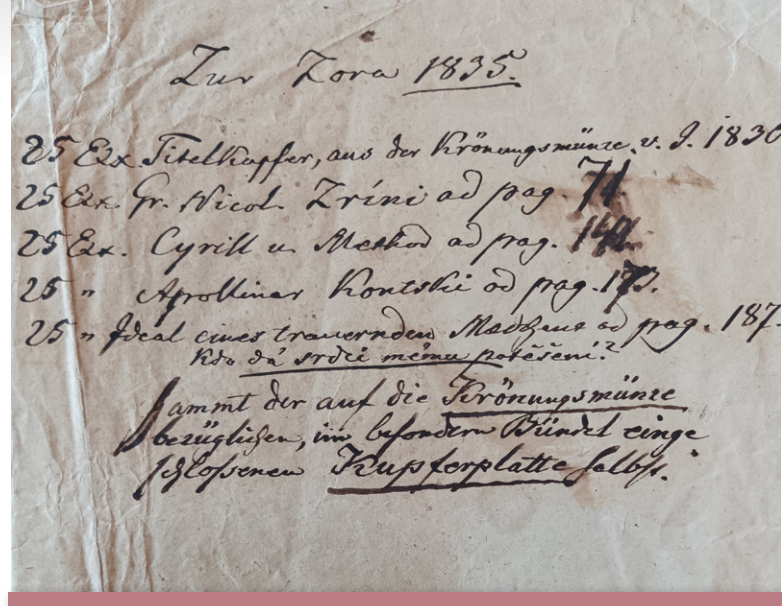 Zur Zora 1835.
25 Ex. Titelkupfer, aus der Krönungsmünze v. J. 1830
25 Ex. Gr. Nicol. Zríni ad pag. 71.
25 Ex. Cyrill u. Method ad pag.
25 " Apollinar Kontski ad pag. 173.
25 " Ideal eines trauernden ad pag. 187.
Kdo dá srdci mému potěšení?
sammt der auf die Krönungsmünze
bezüglichen, im besondern Bündel einge
schlossenen Kupferplatte selbst.